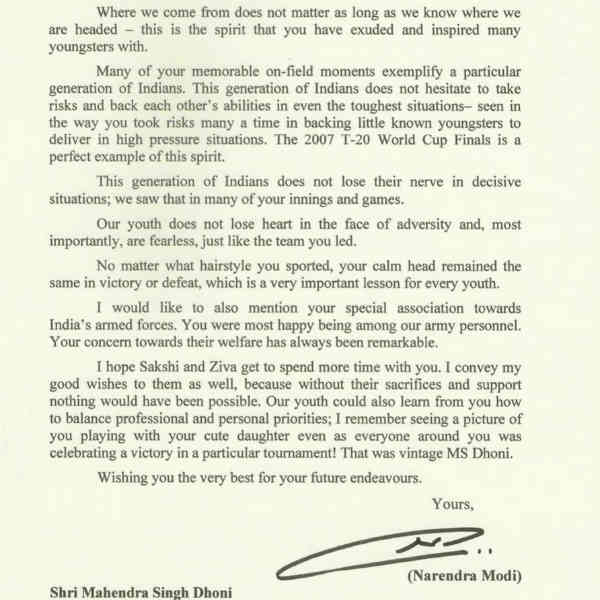 Where we come from does not matter as long as we know where we
are headed – this is the spirit that you have exuded and inspired many
youngsters with.
Many of your memorable on-field moments exemplify a particular
generation of Indians. This generation of Indians does not hesitate to take
risks and back each other's abilities in even the toughest situations– seen in
the way you took risks many a time in backing little known youngsters to
deliver in high pressure situations. The 2007 T-20 World Cup Finals is a
perfect example of this spirit.
This generation of Indians does not lose their nerve in decisive
situations; we saw that in many of your innings and games.
Our youth does not lose heart in the face of adversity and, most
importantly, are fearless, just like the team you led.
No matter what hairstyle you sported, your calm head remained the
same in victory or defeat, which is a very important lesson for every youth.
I would like to also mention your special association towards
India's armed forces. You were most happy being among our army personnel.
Your concern towards their welfare has always been remarkable.
I hope Sakshi and Ziva get to spend more time with you. I convey my
good wishes to them as well, because without their sacrifices and support
nothing would have been possible. Our youth could also learn from you how
to balance professional and personal priorities; I remember seeing a picture of
you playing with your cute daughter even as everyone around you was
celebrating a victory in a particular tournament! That was vintage MS Dhoni.
Wishing you the very best for your future endeavours.
Yours,
(Narendra Modi)
Shri Mahendra Singh Dhoni